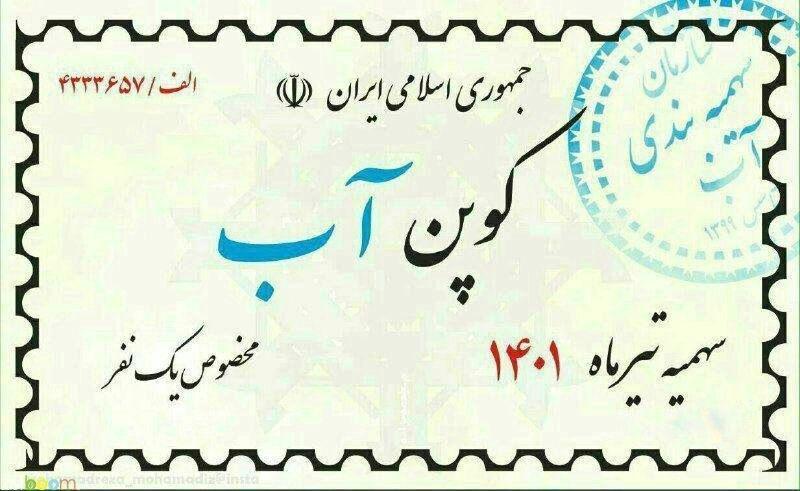 جمهوری اسلامی ایران
الف/ ۴۳۳۳۶۵۷
سازمان
سهمیه بندی
آب
۱۳۹۹
کوپن آب
سهمیه تیرماه ۱۴۰۱
مخصوص یک نفر
boom
adreza_mohamadiz@insta